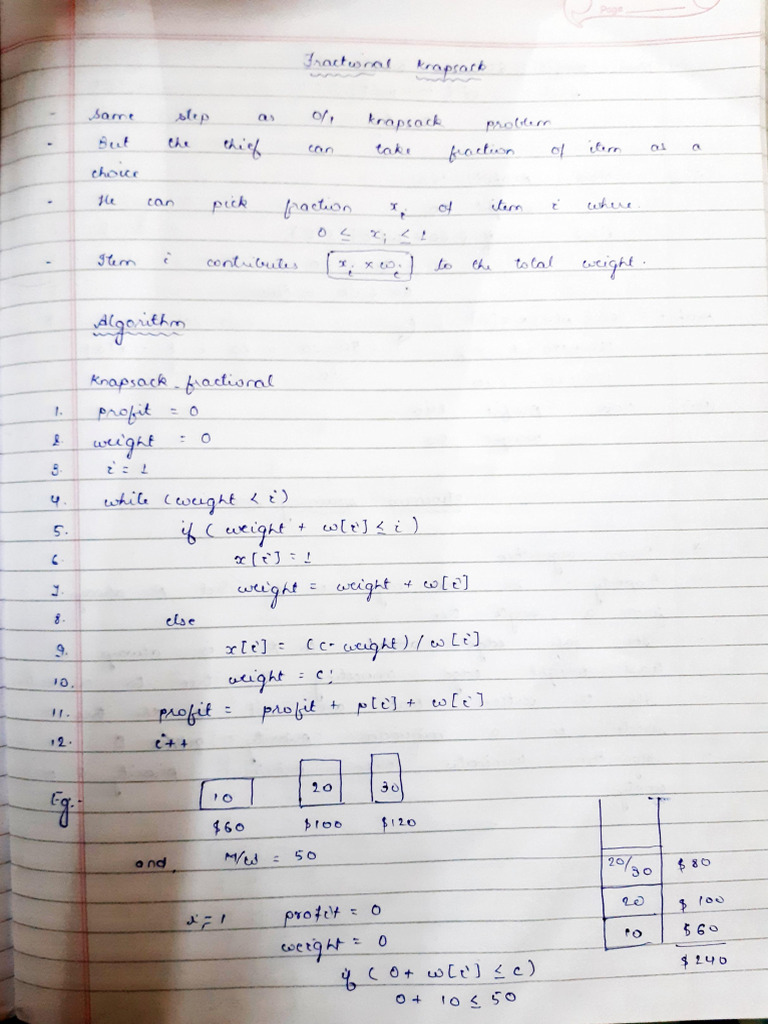 Page
Fractional Knapsack
- Same step as 0/1 knapsack problem
- But the thief can take fraction of item as a
choice
- He can pick fraction xi of item i where.
0 ≤ xi ≤ 1
- Item i contributes [xi × wi] to the total weight.
Algorithm
Knapsack_fractional
1. profit = 0
2. weight = 0
3. i = 1
4. while (weight < i)
5. if (weight + w[i] ≤ i)
6. x[i] = 1
7. weight = weight + w[i]
8. else
9. x[i] = (c - weight) / w[i]
10. weight = c;
11. profit = profit + p[i] + w[i]
12. i++
Eg.- 10 20 30
$60 $100 $120
and, M/W = 50
20/30 $80
20 $100
10 $60
$240
i = 1 profit = 0
weight = 0
if (0 + w[i] ≤ c)
0 + 10 ≤ 50